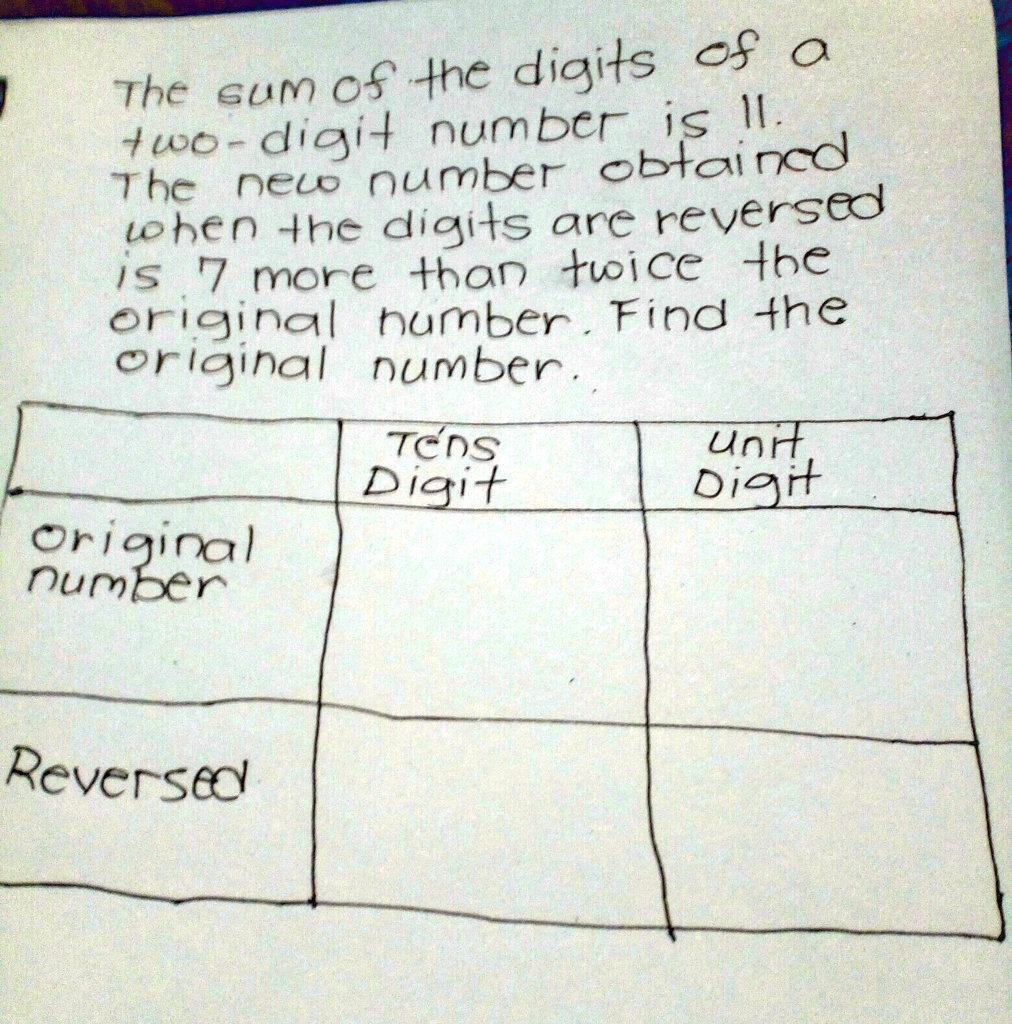 The sum of the digits of a
two-digit number is 11.
The new number obtained
when the digits are reversed
is 7 more than twice the
original number. Find the
original number.
Tens Digit
Unit Digit
Original number
Reversed